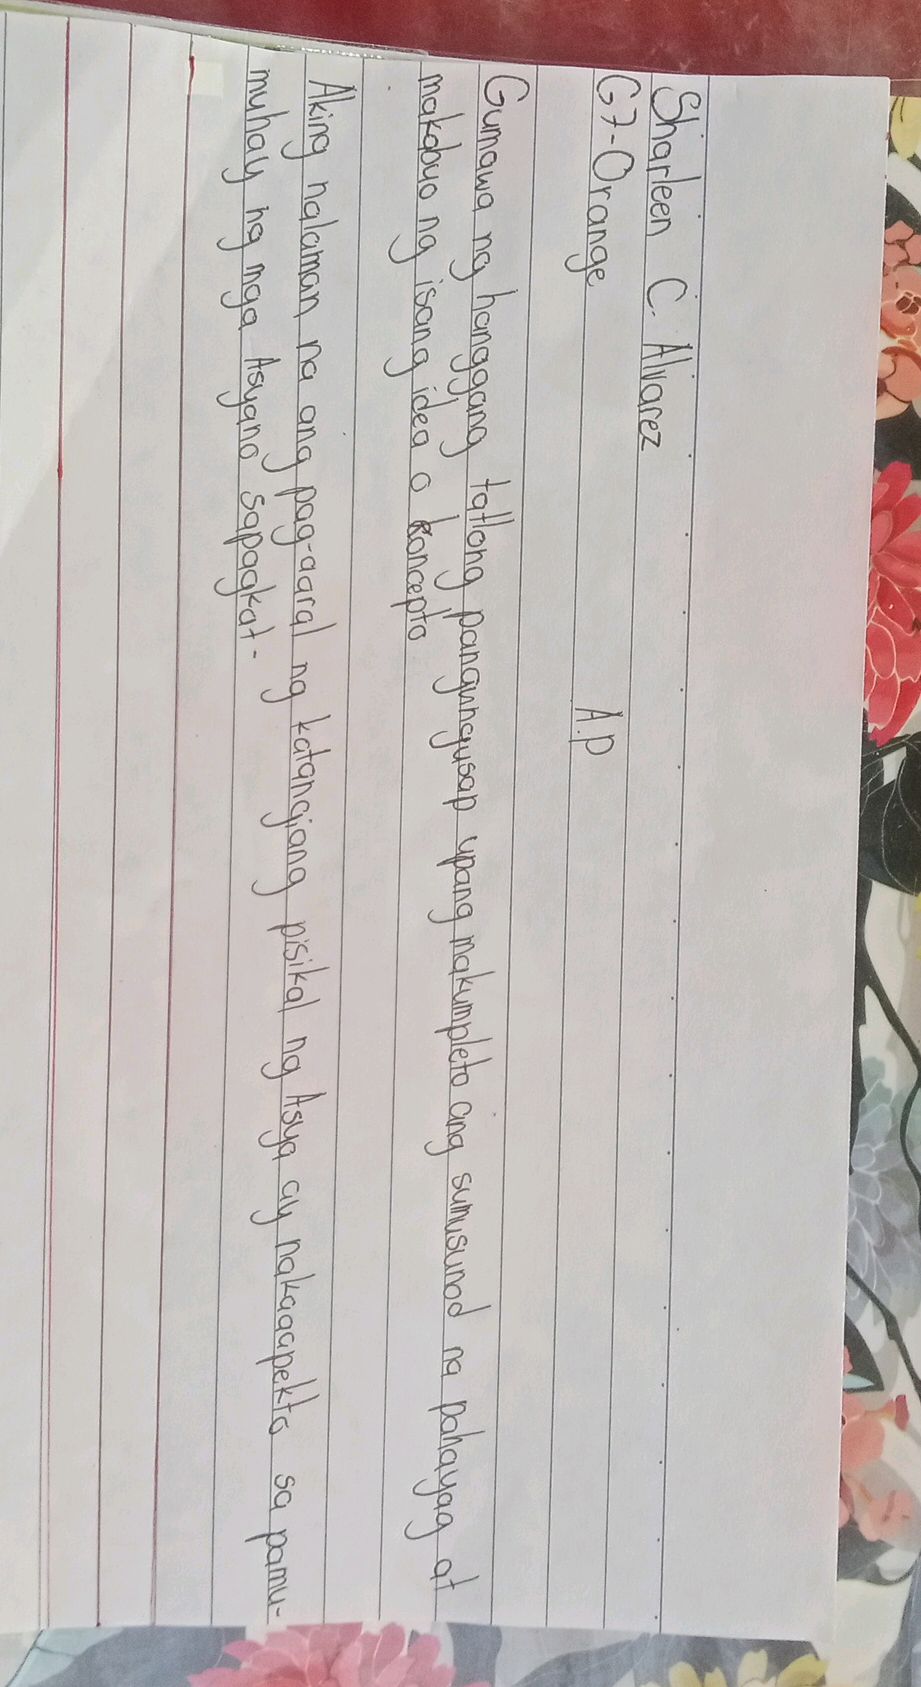 Sharleen C. Alvarez
G7-Orange A.P
Gumawa ng hanggang tatlong pangungusap upang makumpleto ang sumusunod na pahayag at
makabuo ng isang idea o koncepto
Aking nalaman na ang pag-aaral ng katangiang pisikal ng Asya ay nakaaapekto sa pamu-
muhay ng mga Asyano sapagkat-